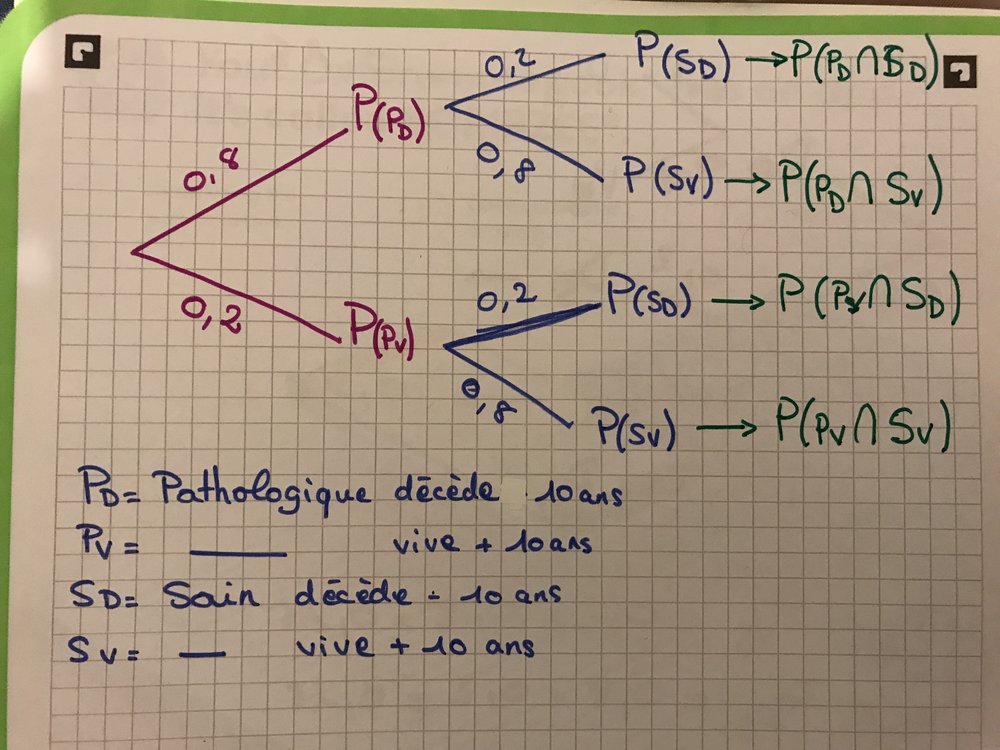 0,2 P(SD) → P(PD ∩ SD)
P(PD)
0,8
0,8 P(Sv) → P(PD ∩ Sv)
0,2 P(SD) → P(Pv ∩ SD)
0,2
P(Pv)
0,8 P(Sv) → P(Pv ∩ Sv)
PD = Pathologique décède 10 ans
Pv = —— vive + 10 ans
SD = Sain décède - 10 ans
Sv = — vive + 10 ans